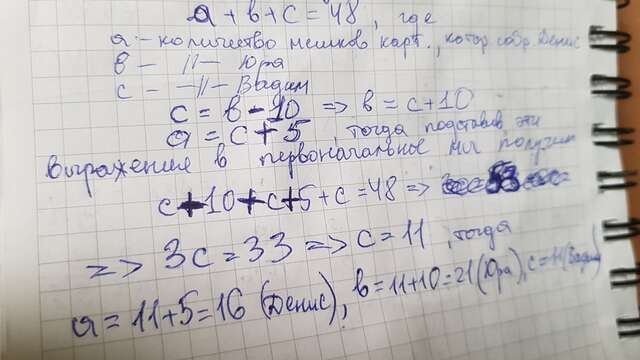 a + b + c = 48, где
a - количество мешков карт., котор. собр. Денис
b - -//- Юра
c - -//- Вадим
c = b - 10 => b = c + 10
a = c + 5, тогда подставив эти
выражения в первоначальное мы получим
c + 10 + c + 5 + c = 48 =>
=> 3c = 33 => c = 11, тогда
a = 11 + 5 = 16 (Денис), b = 11 + 10 = 21 (Юра), c = 11 (Вадим)